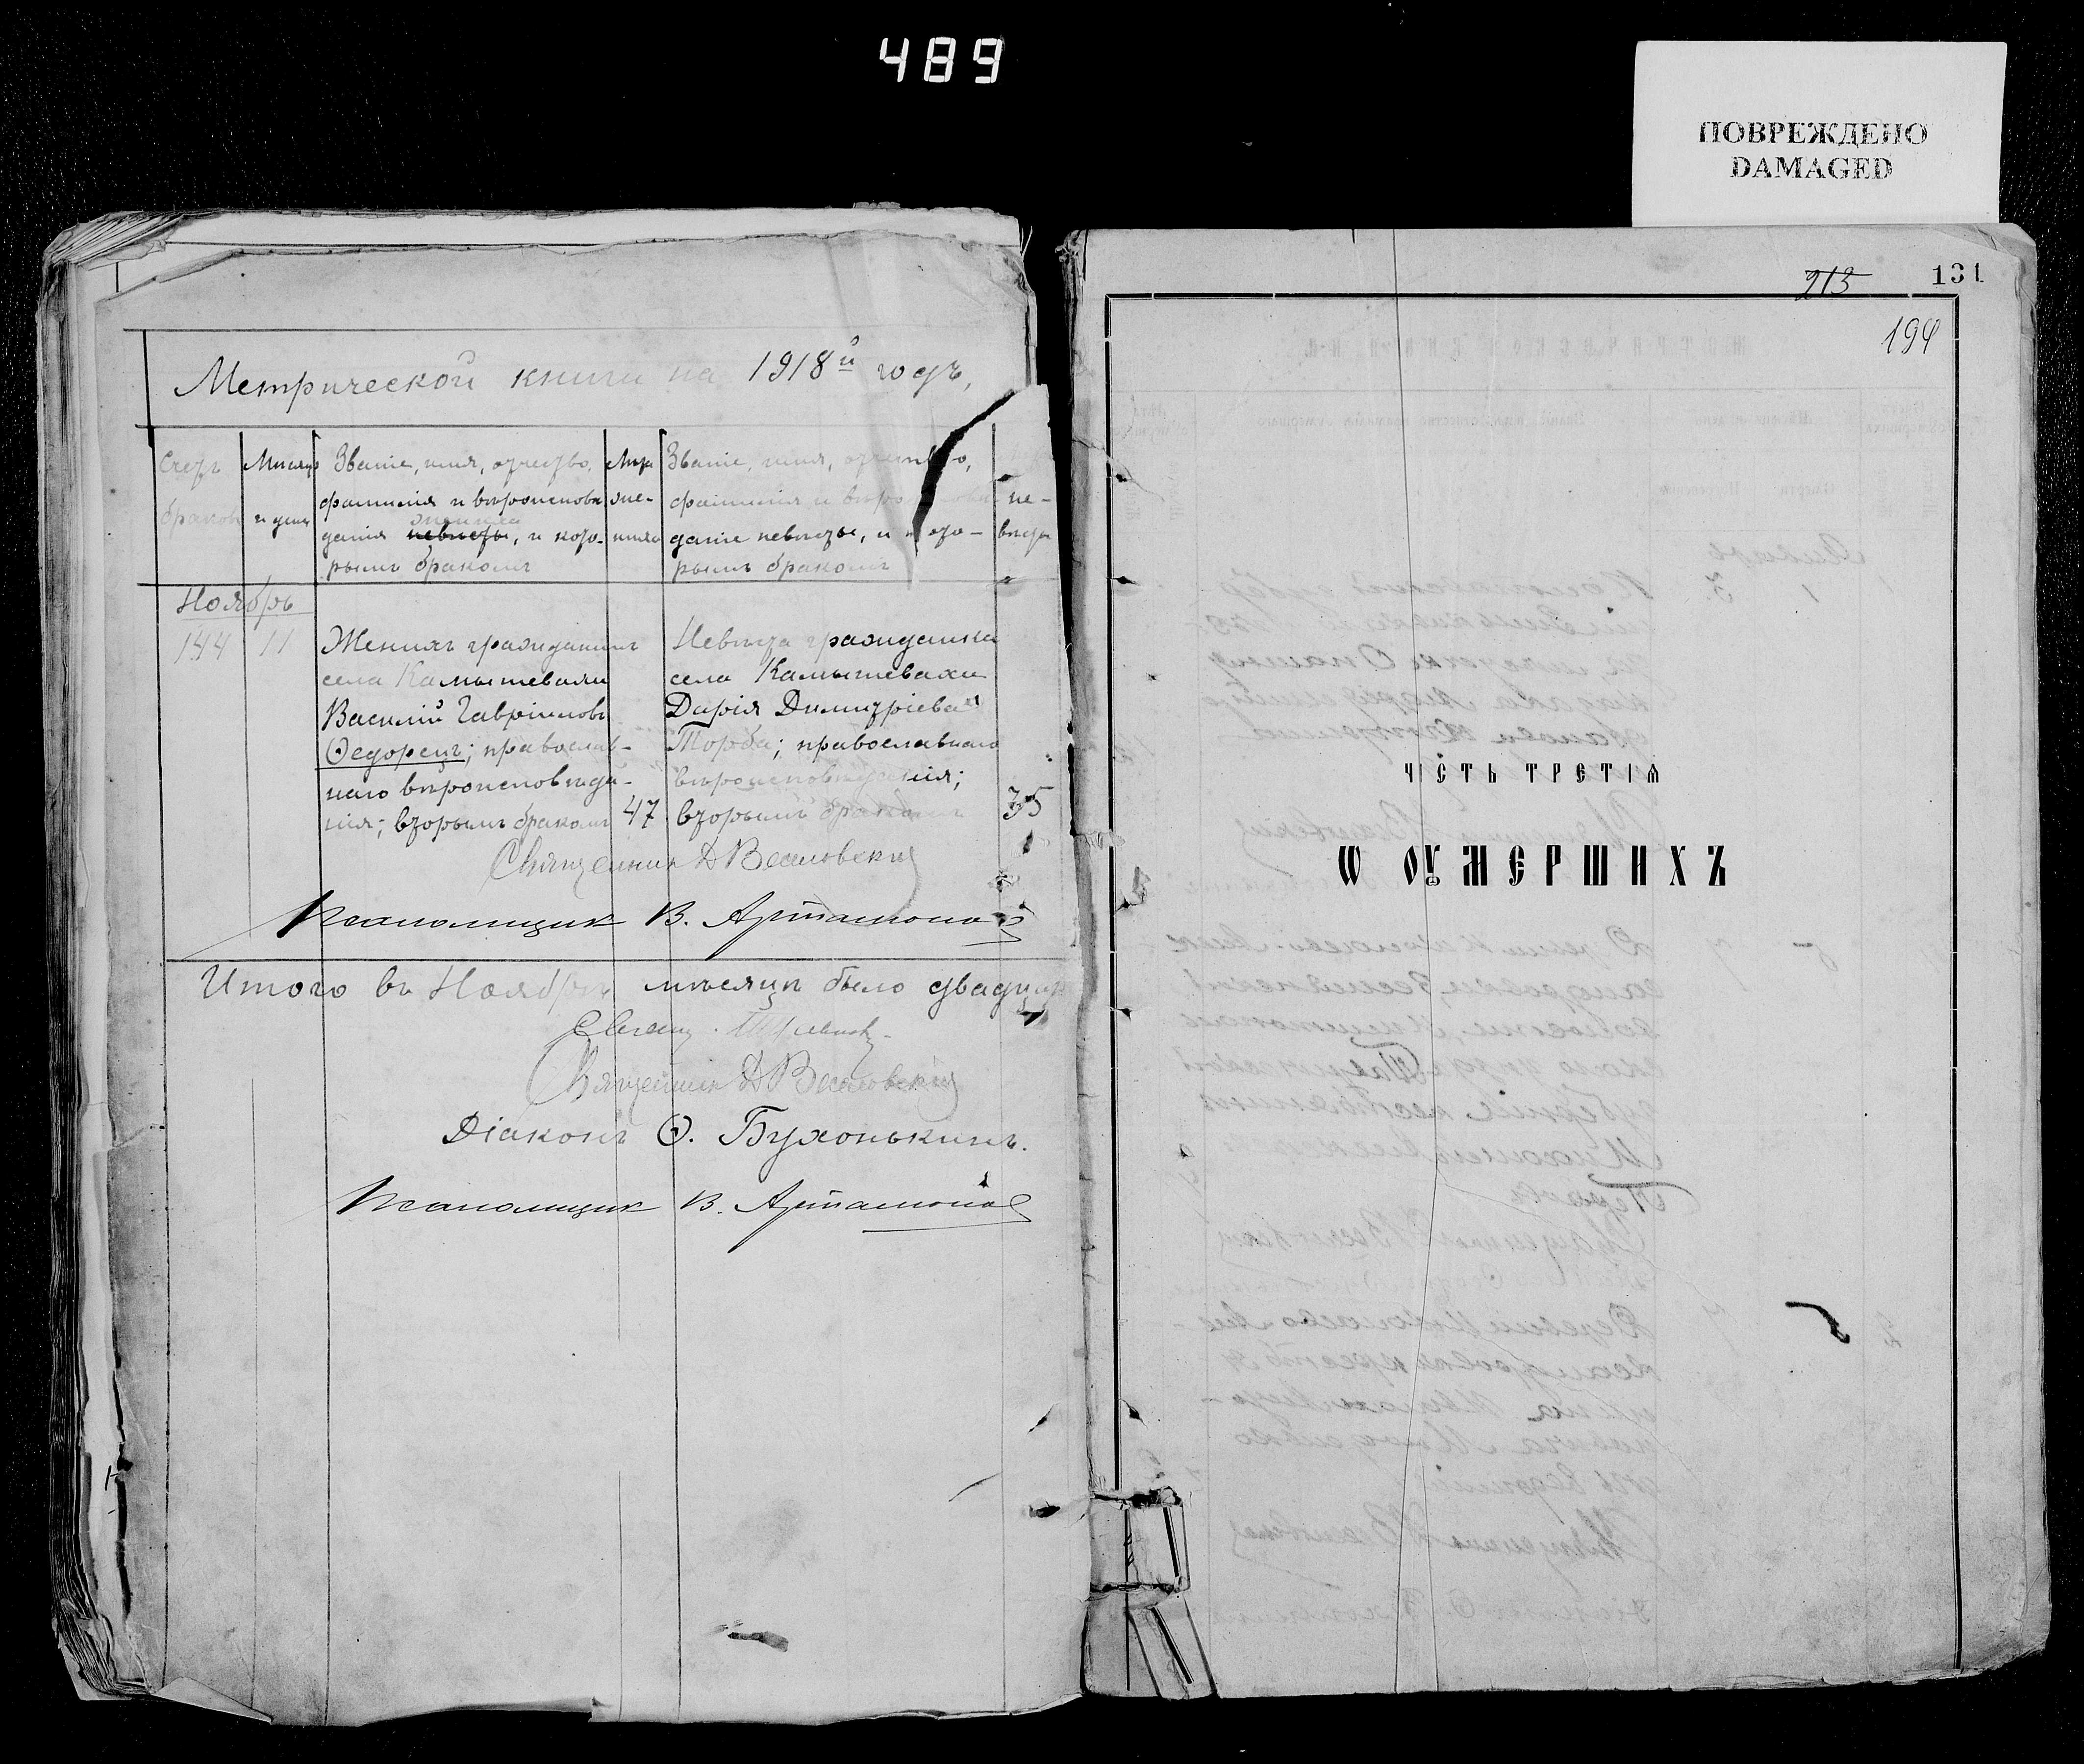 489
ПОВРЕЖДЕНО
DAMAGED
Метрической книги на 1918й годъ,
Счетъ браковъ
Мѣсяцъ и день
Званіе, имя, отчество,
фамилія и вѣроисповѣ
даніе невѣсты жениха, и кото-
рымъ бракомъ
Лѣта
же-
ниха
Званіе, имя, отчество,
фамилія и вѣроисповѣ
даніе невѣсты, и кото-
рымъ бракомъ
не-
вѣсты
Ноябрь
144 11
Женихъ гражданинъ
села Камышевахи
Василій Гавріиловъ
Ѳедорецъ; православ-
наго вѣроисповѣда-
нія; вторымъ бракомъ
47
Невѣста гражданка
села Камышевахи
Дарія Димитріева
Торба; православнаго
вѣроисповѣданія;
вторымъ бракомъ
35
Священникъ Д Веселовскій
Псаломщик В. Артамонов
Итого въ Ноябрѣ мѣсяцѣ было двадцать
Священникъ Д Веселовскій
Діаконъ Ѳ. Бухонькинъ.
Псаломщик В. Артамонов
213
131
194
ЧАСТЬ ТРЕТІѦ
Ѡ ОУМЕРШИХЪ